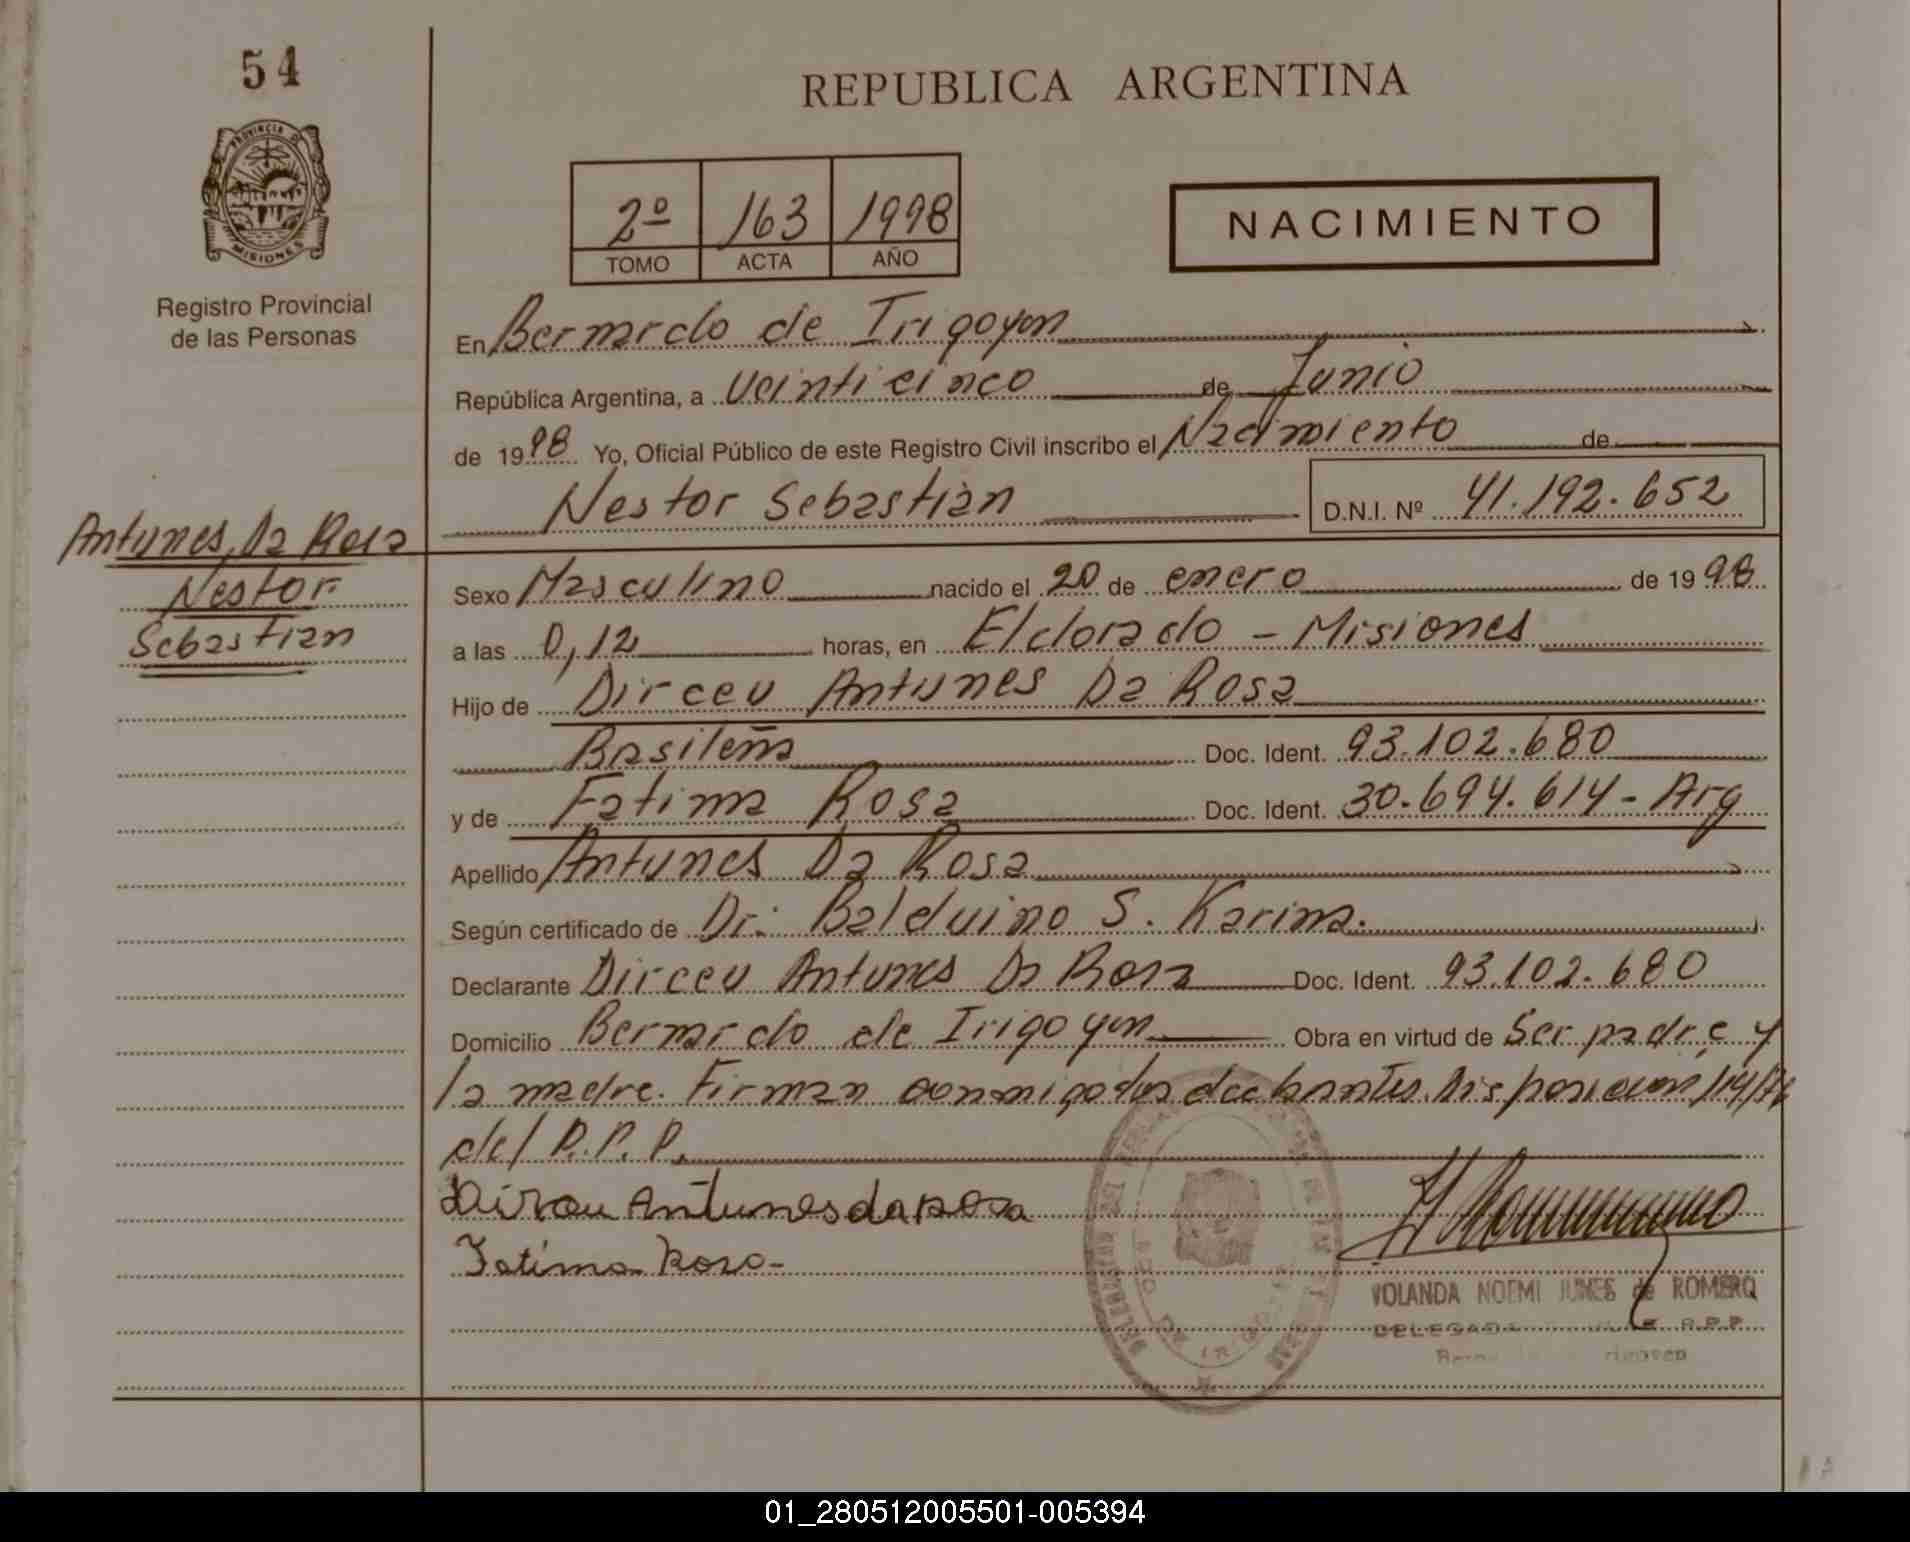 54
PROVINCIA DE
MISIONES
Registro Provincial
de las Personas
REPUBLICA ARGENTINA
2º 163 1998
TOMO ACTA AÑO
NACIMIENTO
En Bernardo de Irigoyen
República Argentina, a veinticinco de Junio
de 1998 Yo, Oficial Público de este Registro Civil inscribo el Nacimiento de
Nestor Sebastián D.N.I. Nº 41.192.652
Antunes, Da Rosa
Nestor
Sebastian
Sexo Masculino nacido el 20 de enero de 1998
a las 0,12 horas, en Eldorado - Misiones
Hijo de Dirceu Antunes Da Rosa
Basileña Doc. Ident. 93.102.680
y de Fatima Rosa Doc. Ident. 30.694.614 - Arg
Apellido Antunes Da Rosa
Según certificado de Dr: Balduino S. Karina.
Declarante Dirceu Antunes Da Rosa Doc. Ident. 93.102.680
Domicilio Bernardo de Irigoyen Obra en virtud de Ser padre y
la madre. Firman conmigo los declarantes. Disposicion 114/76
del R.P.P.
Dirceu Antunes da Rosa
Fatima Rosa
YOLANDA NOEMI JUNES de ROMERO
DELEGADA R.P.P.
01_280512005501-005394